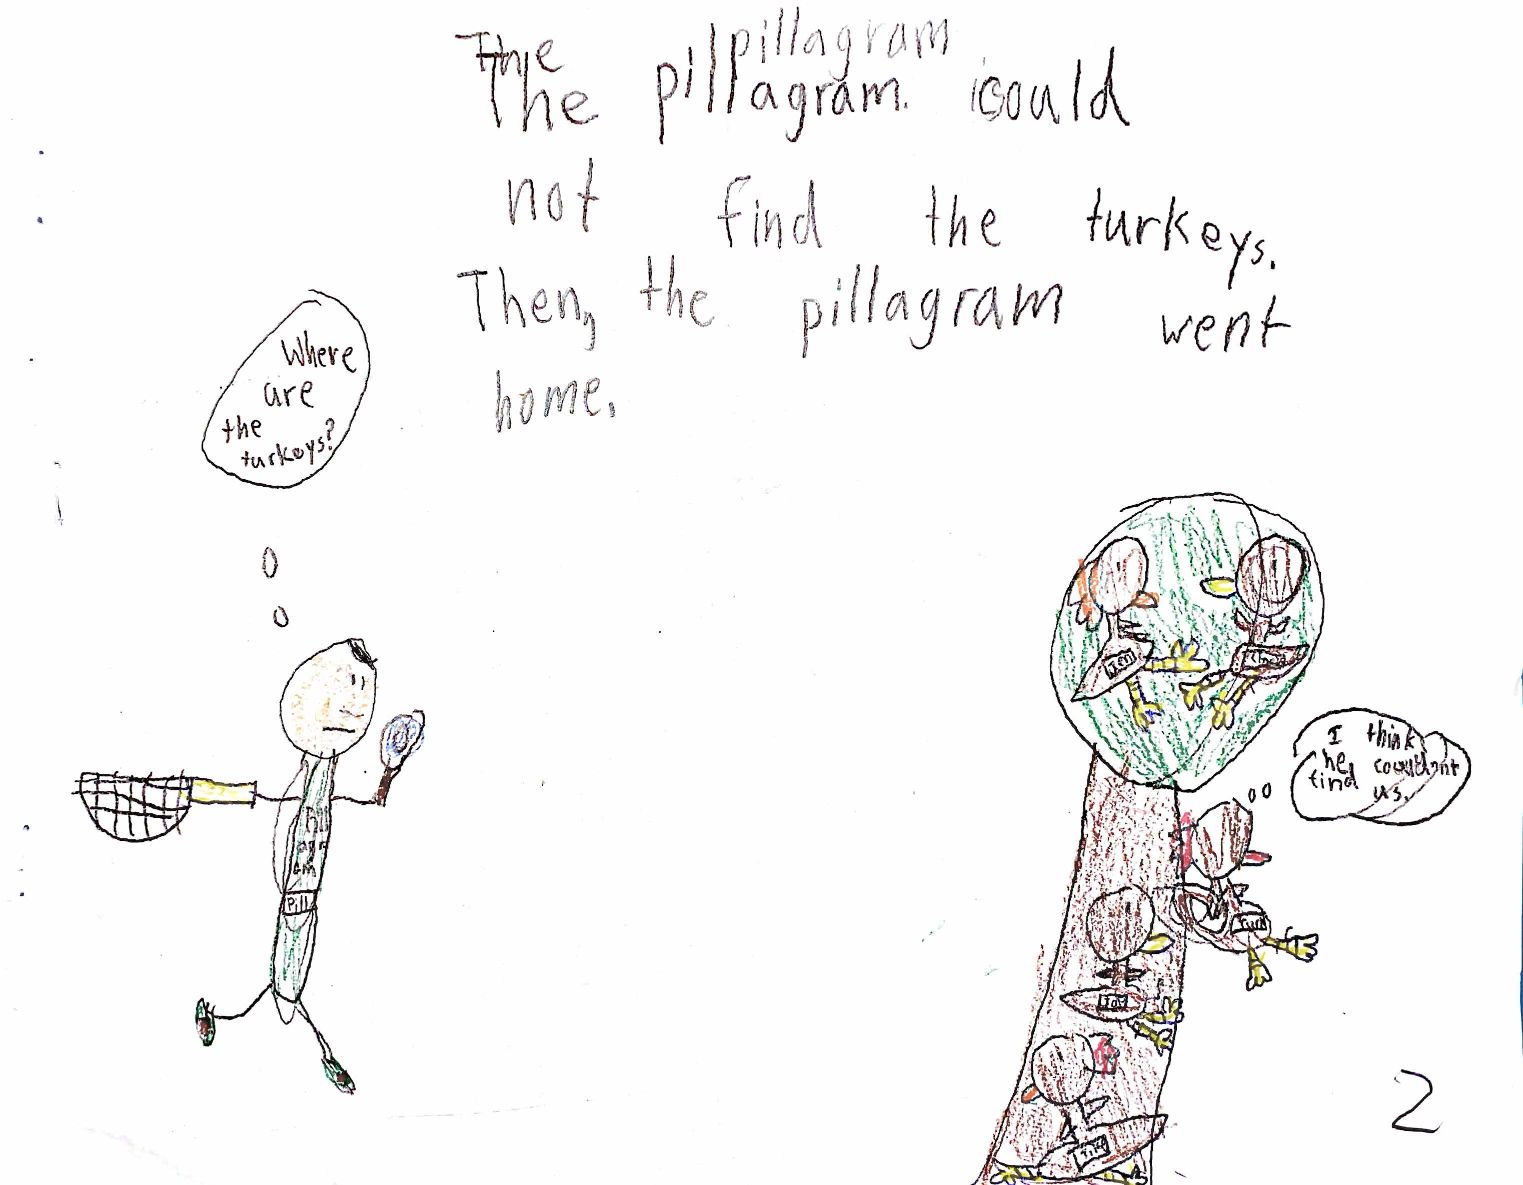 The pillagram
The pillagram. could
not find the turkeys.
Then, the pillagram went
home.
Where
are
the
turkeys?
pill
agr
am
Pill
I think
he couldnt
find us.
2